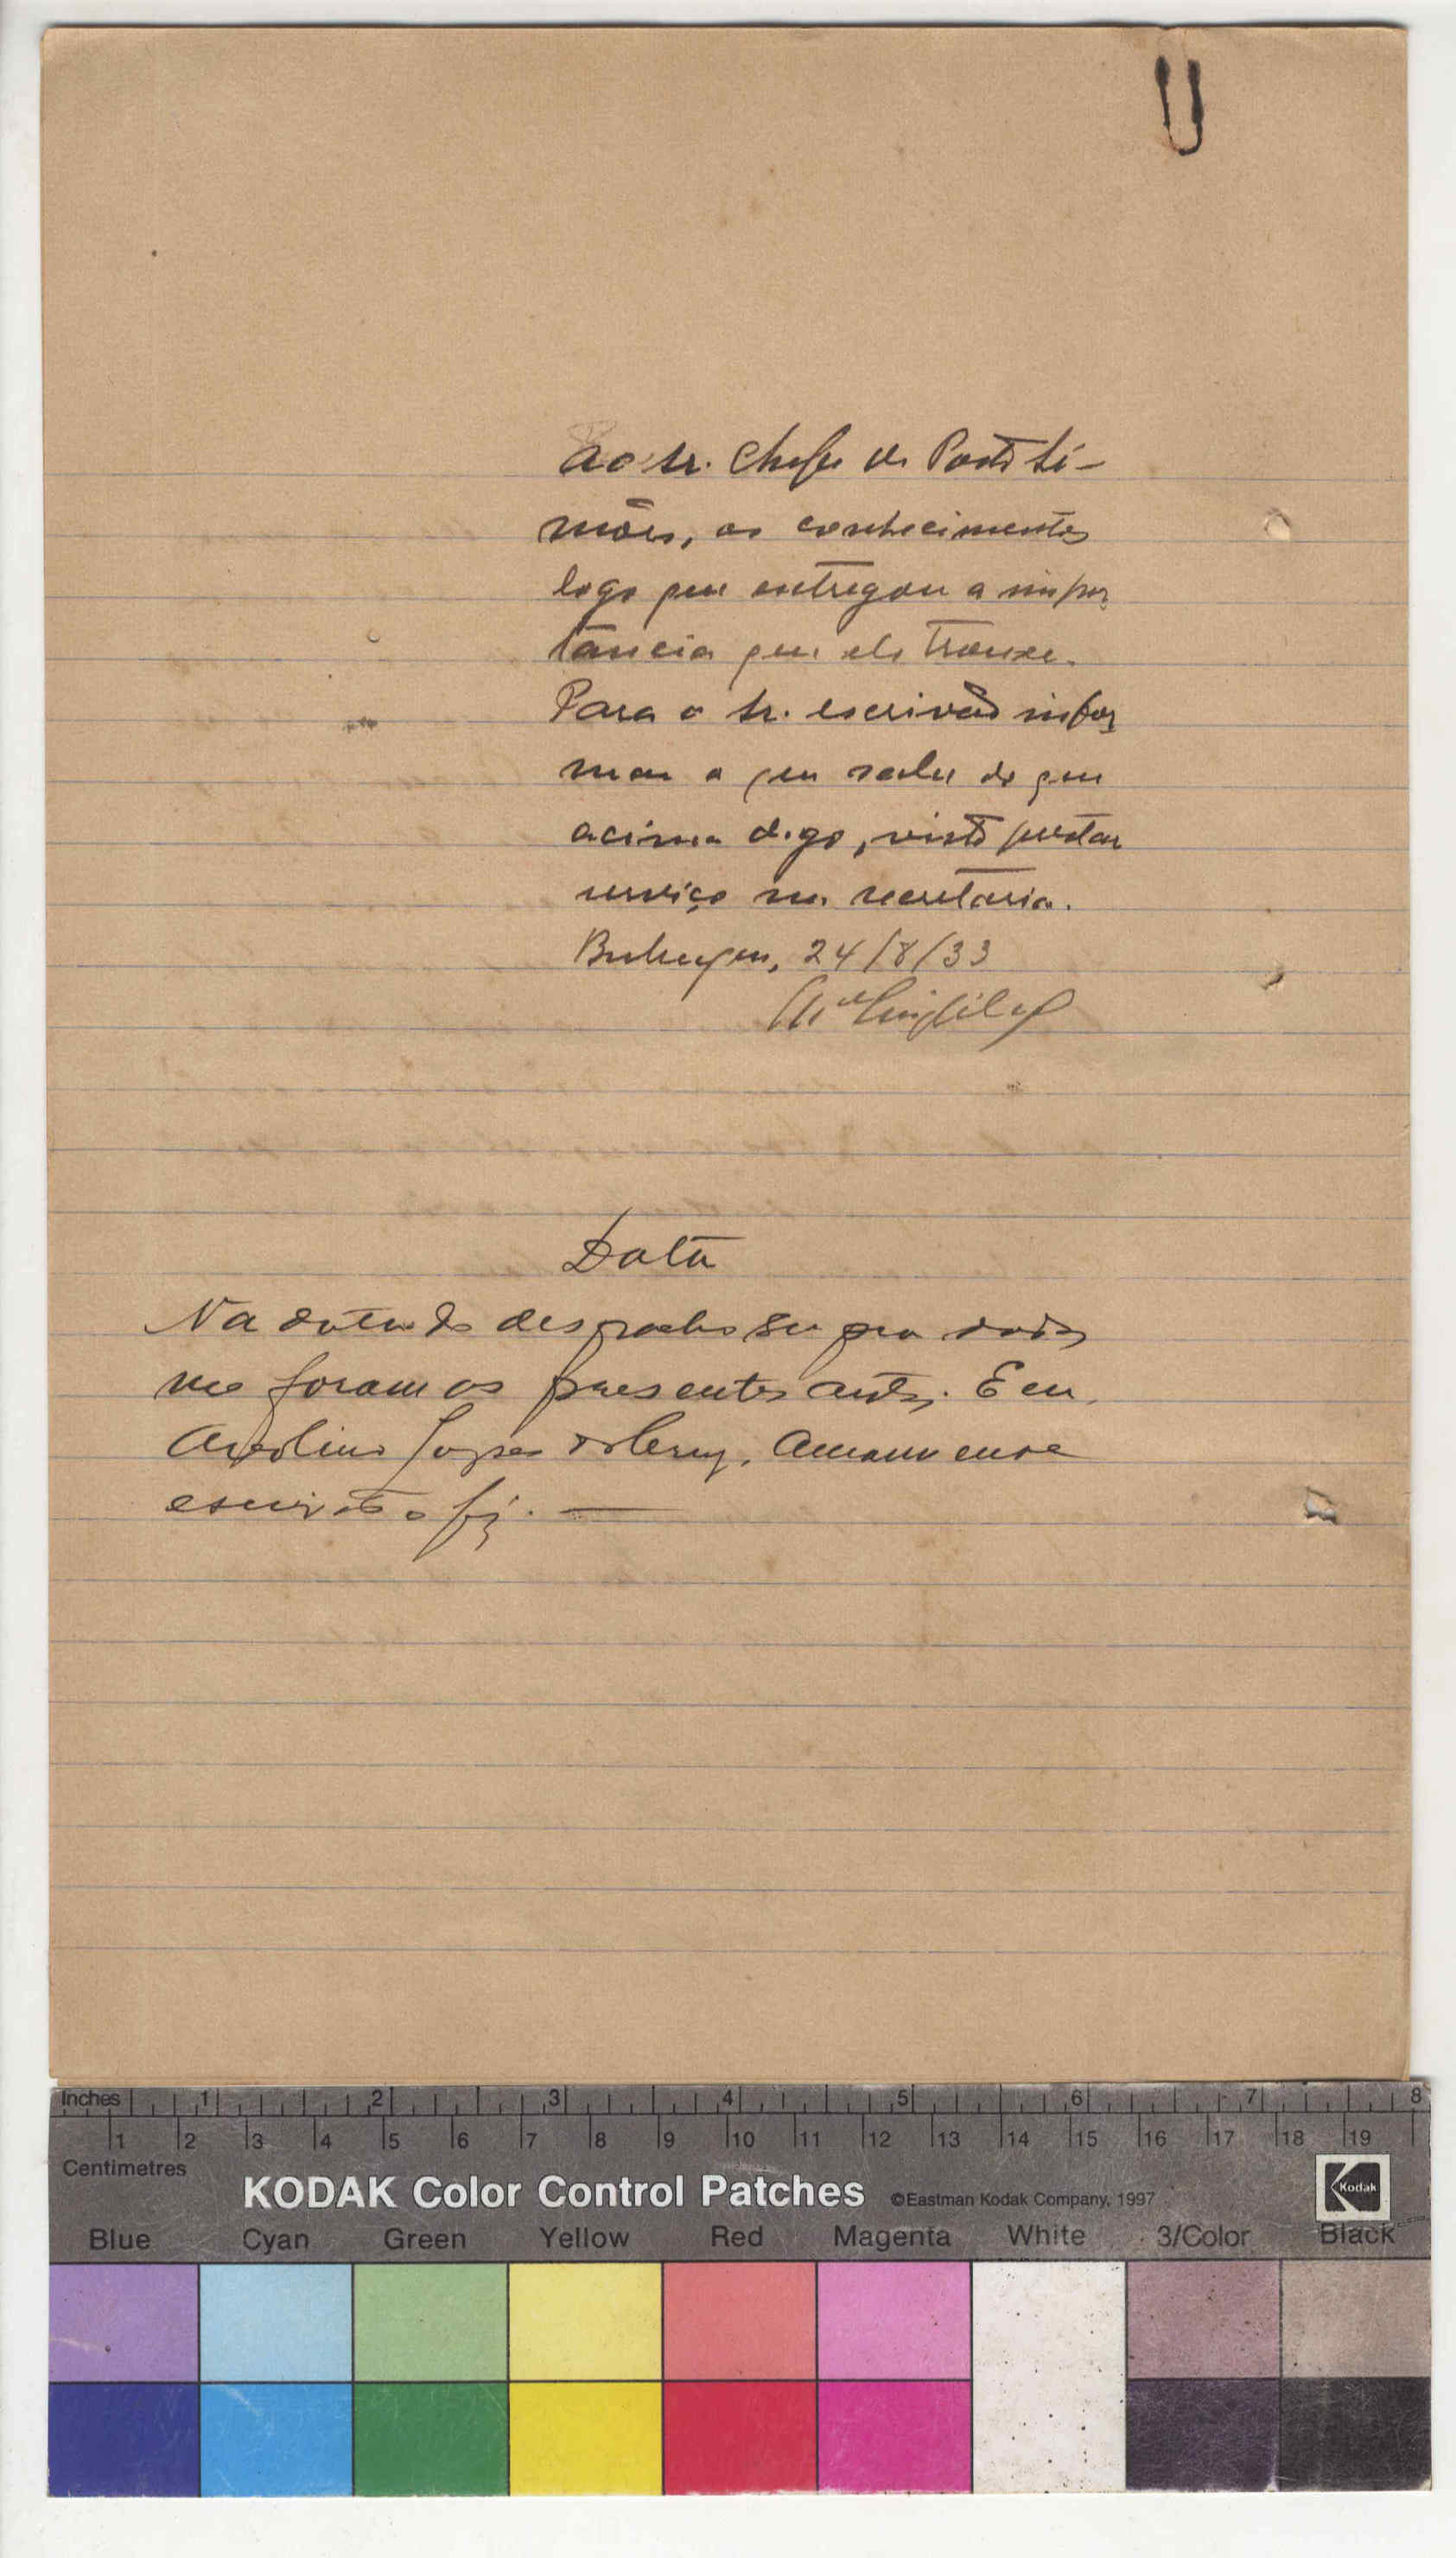 Ao sr. Chefe do Posto Si-
mões, os conhecimentos
logo que entregou a impor
tancia que ele trouxe.
Para o sr. escrivão infor
mar o que sabe do que
acima digo, visto prestar
serviço na secretaria.
24/8/33
Data
Na data do despacho supra
me foram os presentes autos. E eu,
Avelino Lopes da Cruz, Amanuense
escrivão o fiz.
Inches 1 2 3 4 5 6 7 8
1 2 3 4 5 6 7 8 9 10 11 12 13 14 15 16 17 18 19
Centimetres
KODAK Color Control Patches ©Eastman Kodak Company, 1997 Kodak
Blue Cyan Green Yellow Red Magenta White 3/Color Black